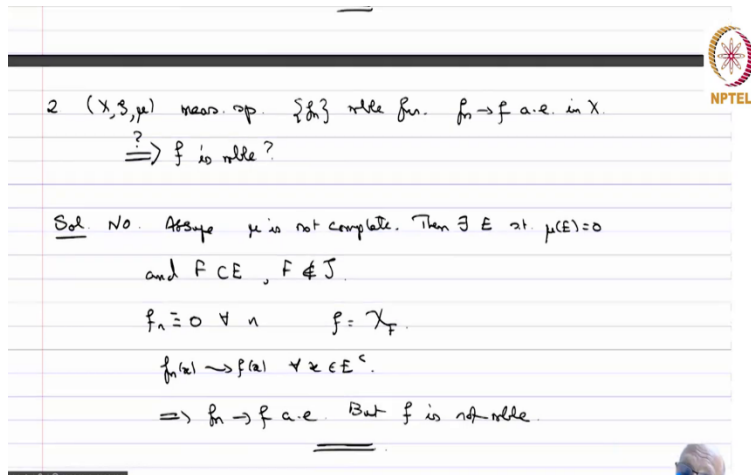 2 (X, S, μ) meas. sp. {fn} mble fns. fn → f a.e. in X.
NPTEL
?
⟹ f is mble?
Sol. No. Assume μ is not complete. Then ∃ E st. μ(E)=0
and F ⊂ E, F ∉ S.
fn ≡ 0 ∀ n f = χ_F.
fn(x) → f(x) ∀ x ∈ E^c.
⟹ fn → f a.e. But f is not mble.